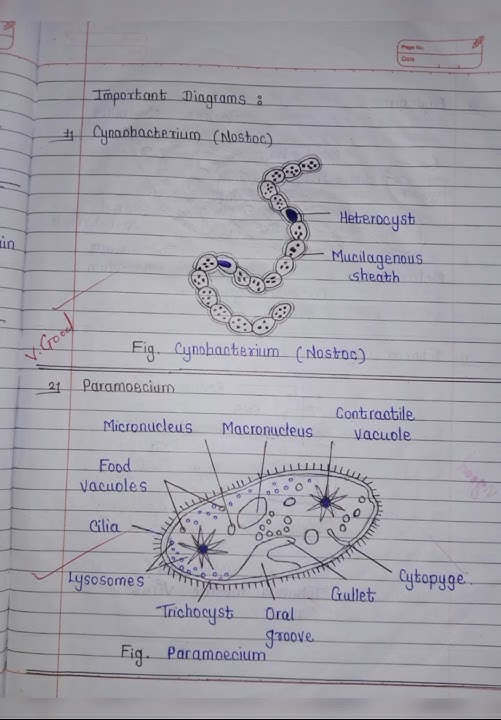 Page No.
Date
Important Diagrams :
1) Cynaobacterium (Nostoc)
Heterocyst
Mucilagenous
sheath
in
V. Good
Fig. Cynobacterium (Nostoc)
2) Paramoecium
Contractile
vacuole
Micronucleus
Macronucleus
Food
vacuoles
Cilia
Lysosomes
Cytopyge.
Gullet
Trichocyst
Oral
groove
Fig. Paramoecium